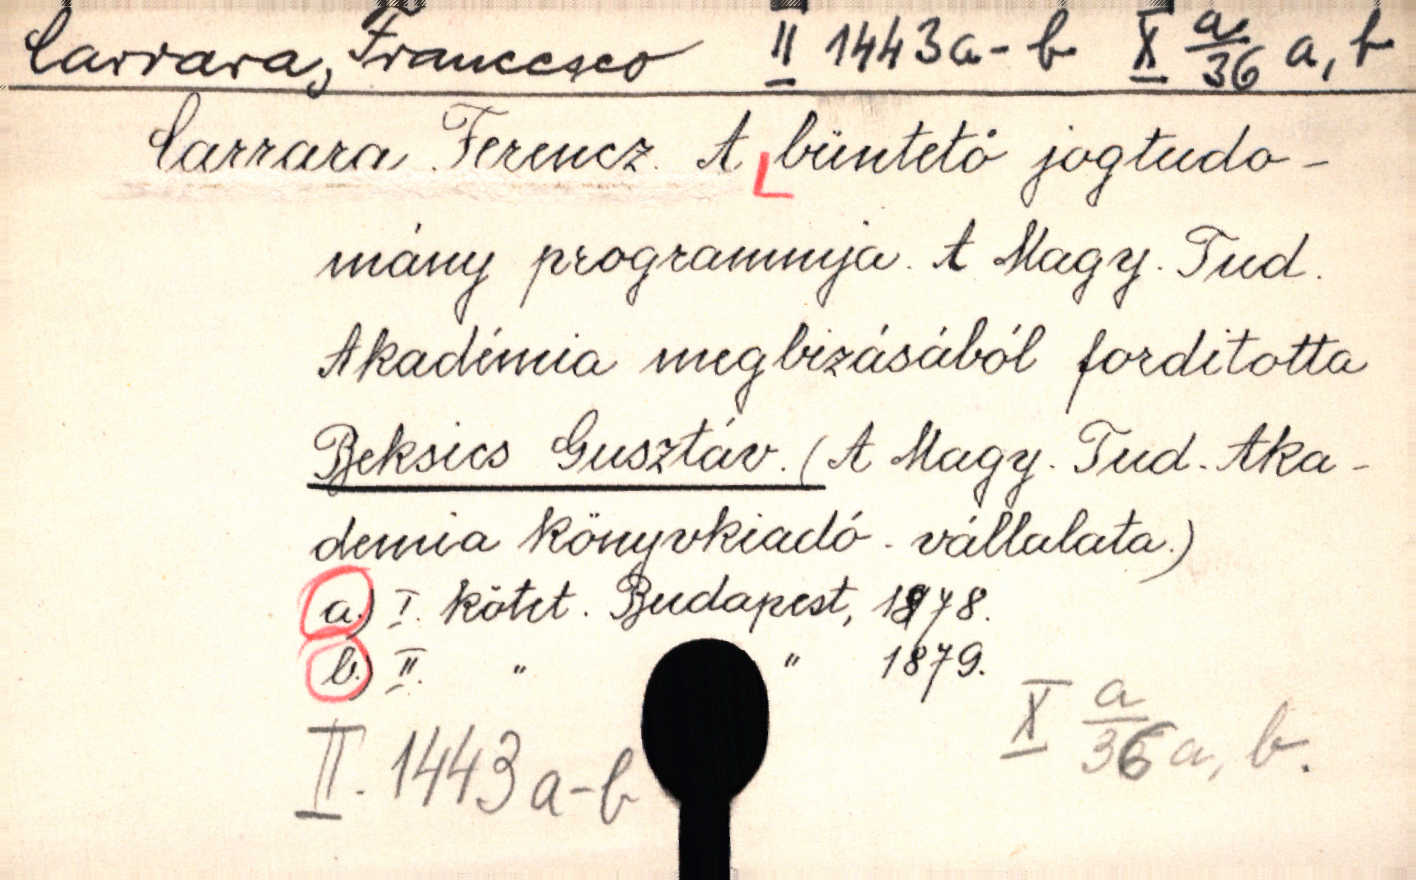 Carrara, Francesco II 1443a-b X a/36 a, b
Carrara Ferencz. A büntető jogtudo-
mány programmja. A Magy. Tud.
Akadémia megbizásából forditotta
Beksics Gusztáv. (A Magy. Tud. Aka-
demia könyvkiadó-vállalata.)
a.) I. kötet. Budapest, 1878.
b.) II. " " 1879.
X a/36 a, b.
II. 1443 a-b